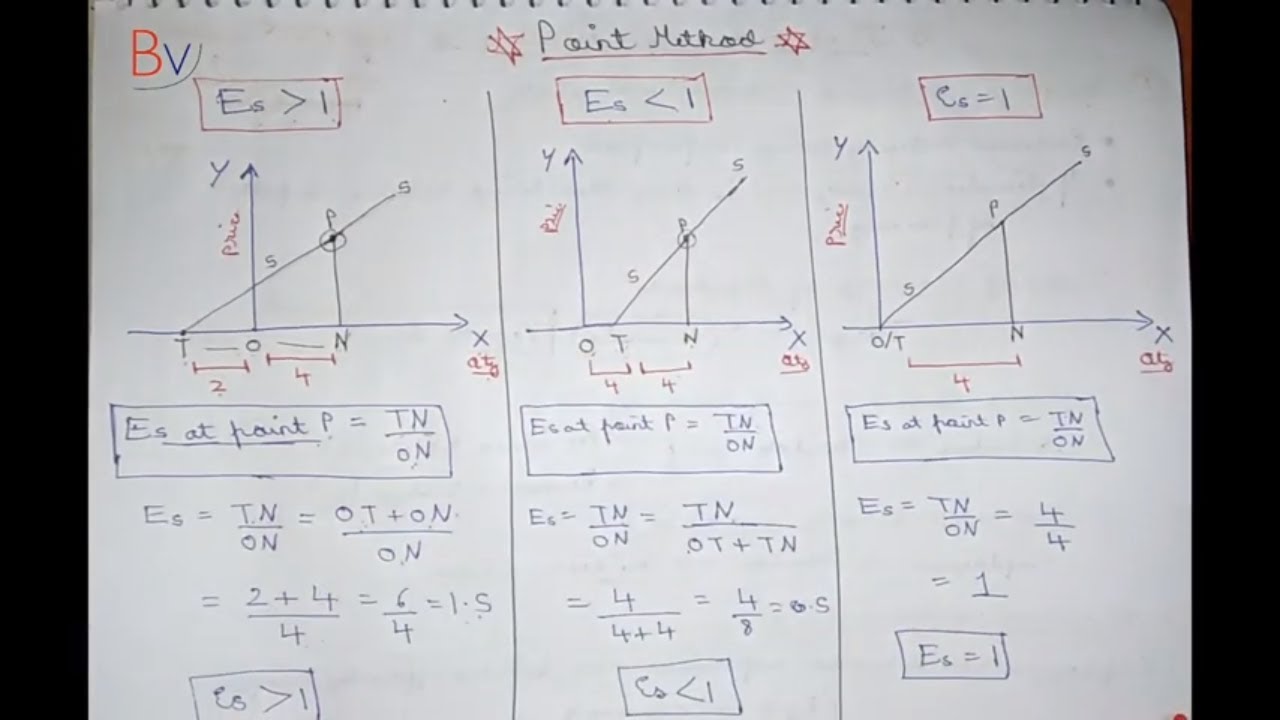 BV
☆ Point Method ☆
Es > 1
Y
Price
S
P
S
T — O — N
X
qty
2
4
Es at point P = TN/ON
Es = TN/ON = OT+ON/ON
= 2+4/4 = 6/4 = 1.5
Es > 1
Es < 1
Y
Price
S
P
S
O T N
X
qty
4
4
Es at point P = TN/ON
Es = TN/ON = TN/OT+TN
= 4/4+4 = 4/8 = 0.5
Es < 1
Es = 1
Y
Price
S
P
S
O/T
N
X
qty
4
Es at point P = TN/ON
Es = TN/ON = 4/4
= 1
Es = 1